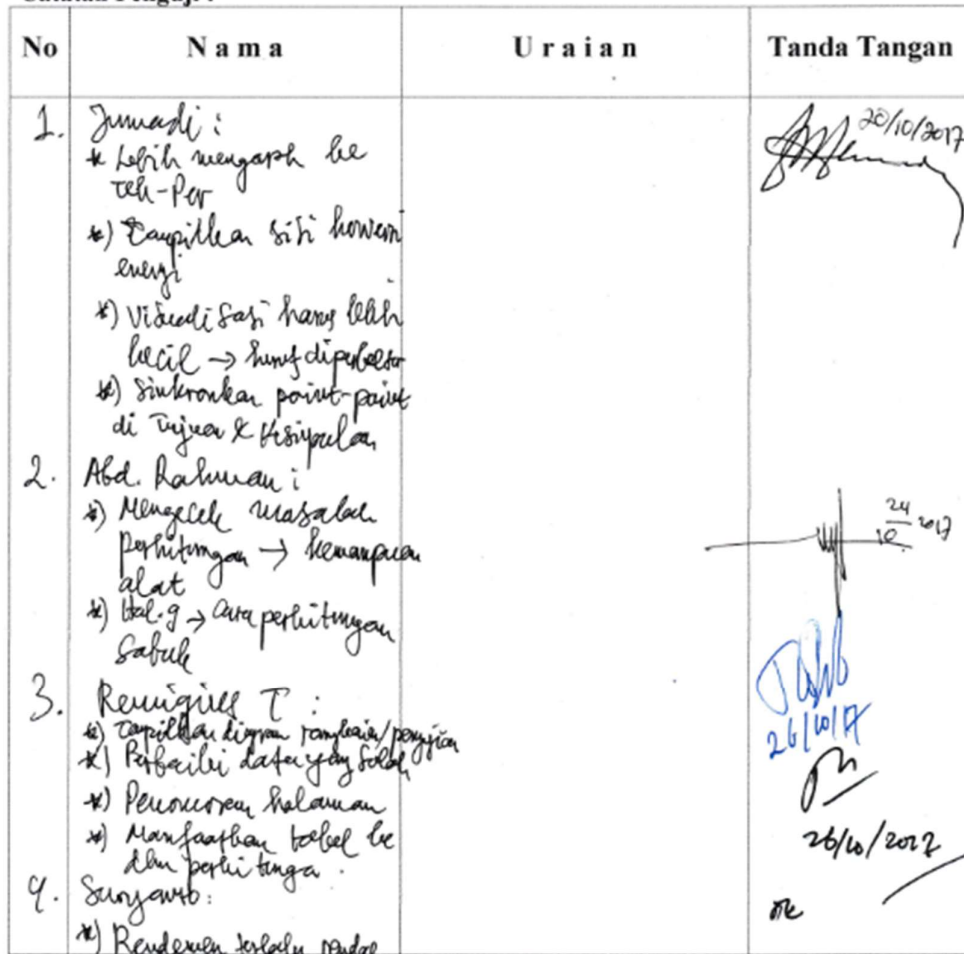 No Nama Uraian Tanda Tangan
1. Jumadi :
* Lebih mengarah ke
Teh-Per
20/10/2017
*) Tampilkan sisi konversi
energi
*) Visualisasi harus lebih
kecil → huruf diperbesar
*) Sinkronkan point-point
di Tujuan & Kesimpulan
2. Abd. Rahman :
*) Mengecek masalah
perhitungan → kemampuan
alat
24/10 2017
*) Hal. 9 → Cara perhitungan
Sabuk
3. Remigius T :
*) Tampilkan diagram rangkaian/pengujian
*) Perbaiki data yang salah
26/10/17
*) Penomoran halaman
*) Manfaatkan tabel ke
dlm perhitunga.
26/10/2017
4. Suryanto:
*) Rendemen terlalu